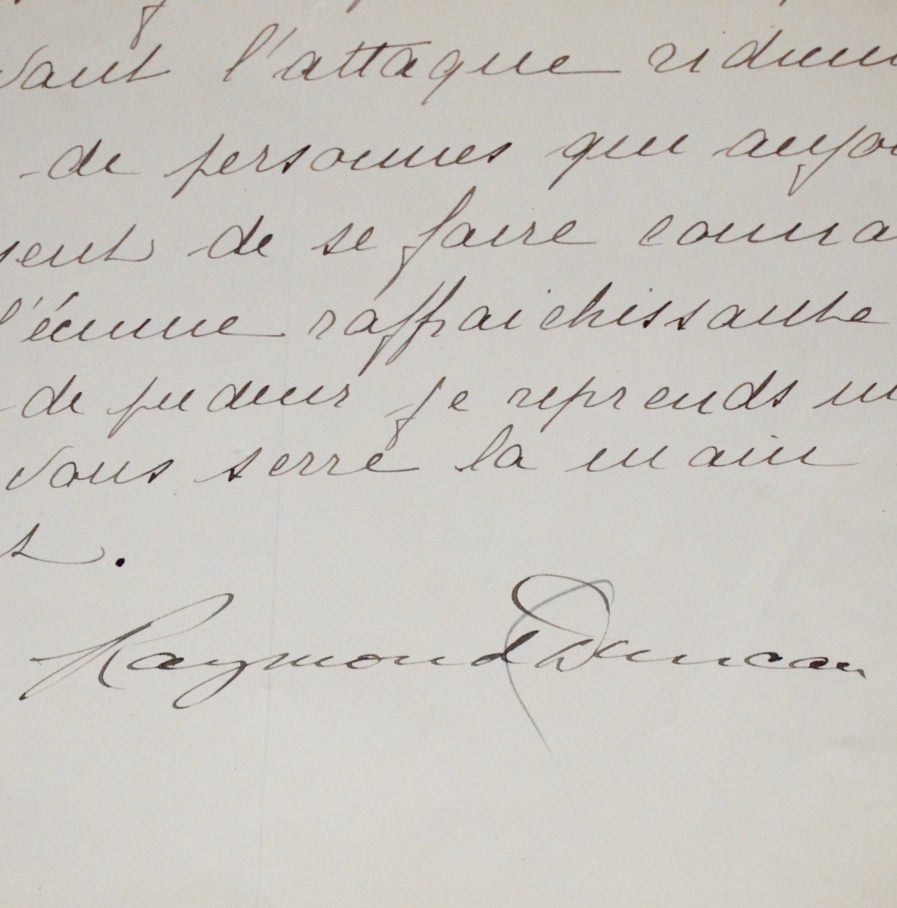 vant l'attaque
de personnes que
sent de se faire
l'écume raffraichissante
de pudeur je reprends
vous serre la main
Raymond Duncan